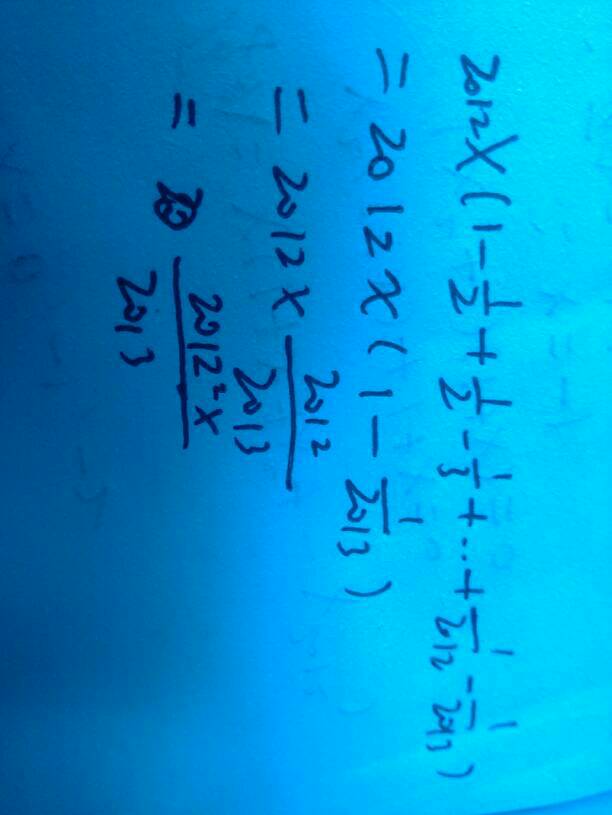 2012x(1-1/2+1/2-1/3+...+1/2012-1/2013)
=2012x(1-1/2013)
=2012x 2012/2013
=2012²x/2013